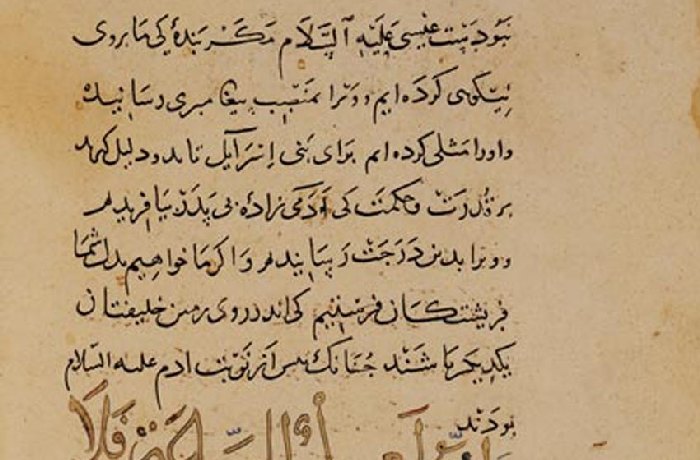 نبودست عیسی علیه السلام مگر بندهٔ کی ما بروی
نیکوی کرده ایم و ورا بمنصب پیغامبری رسانیده
و اورا مثلی کرده ام برای بنی اسرآیل تا بدو دلیل کیرند
بر قدرت و حکمت کی آدمی زادهٔ بی پدر بیافریدیم
و ورا بدین درجت رسانیدیم و اکر ما خواهیم بدل شما
فریشتکان فرستیم کی اندر روی زمین خلیفتان
یکدیکر باشند جنانک بس از نوبت ادم علیه السلام
بودند